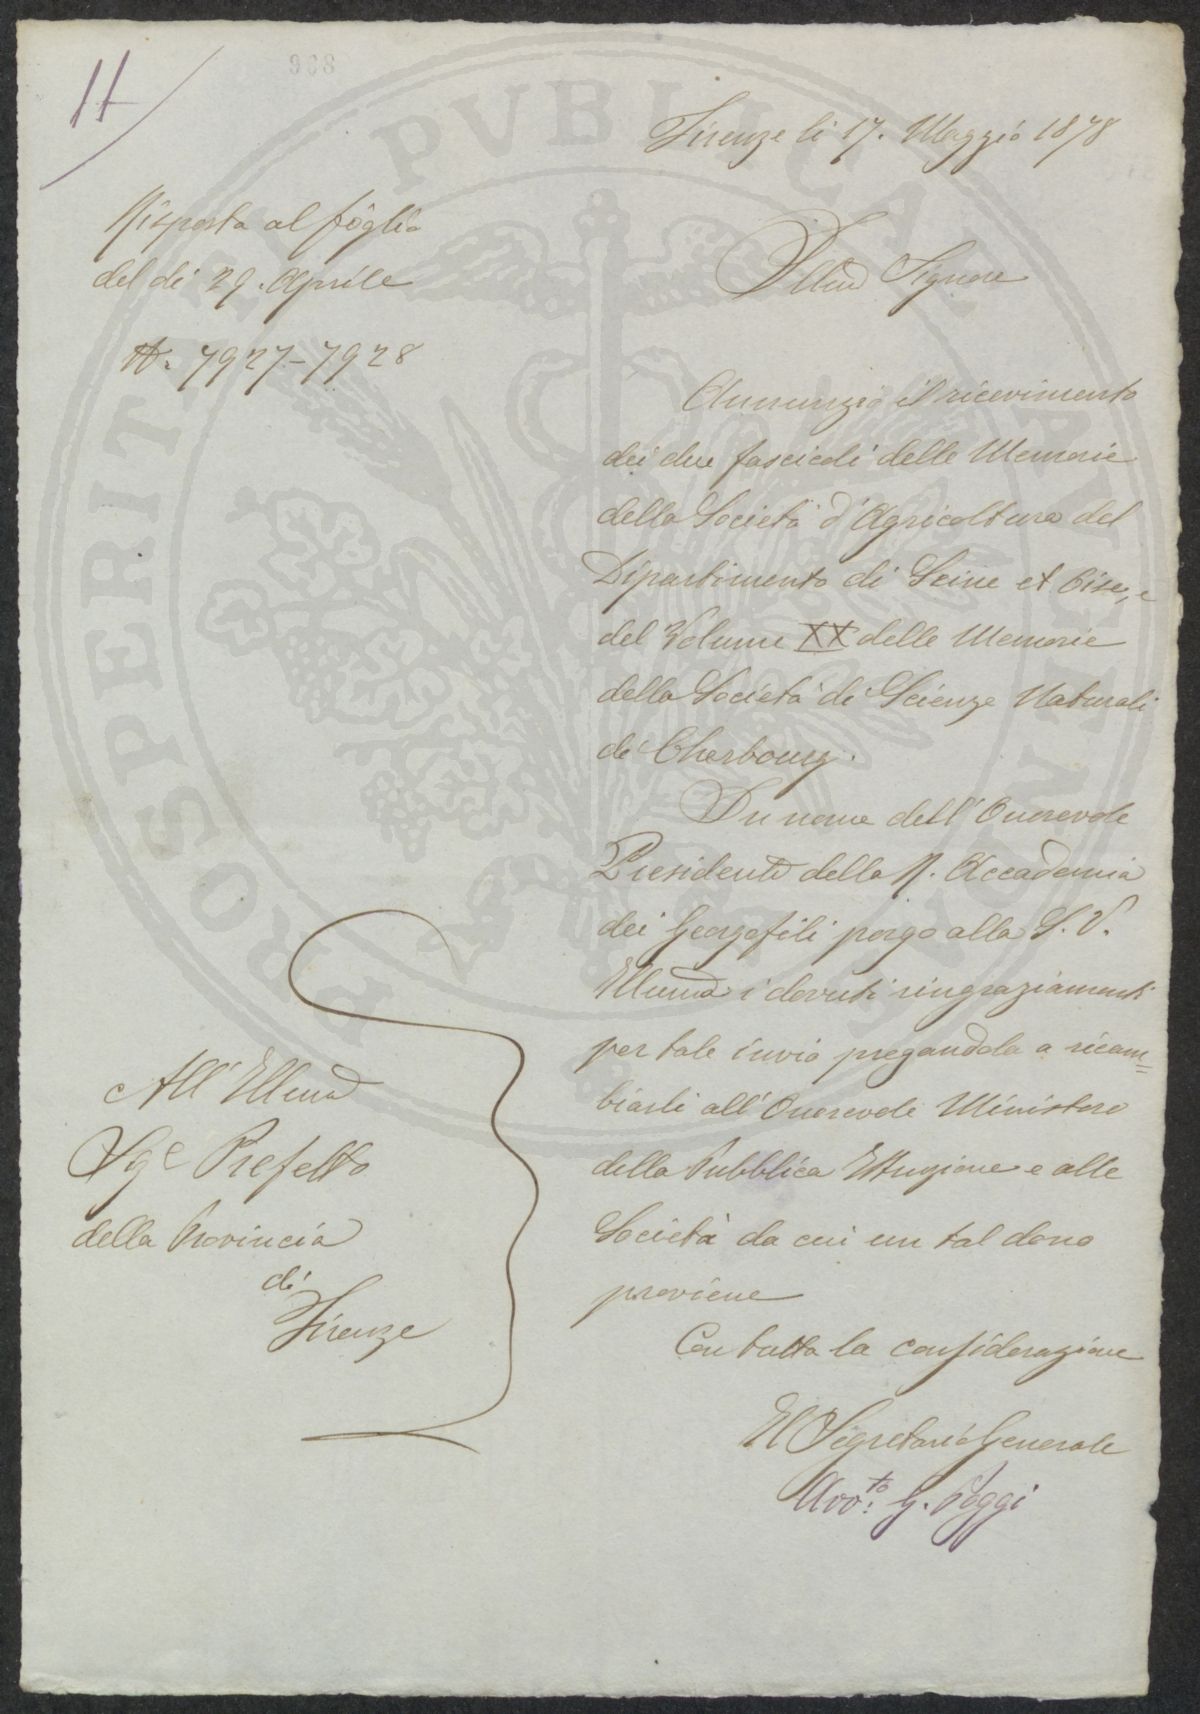 11
968
Firenze li 17. Maggio 1878
Risposta al foglio
del dì 29. Aprile
N. 7927-7928
Illmo Signore
Annunzio il ricevimento
dei due fascicoli delle Memorie
della Società d'Agricoltura del
Dipartimento di Seine et Oise, e
del Volume XX delle Memorie
della Società di Scienze Naturali
di Cherbourg.
In nome dell'Onorevole
Presidente della R. Accademia
dei Georgofili porgo alla S. V.
Illuma i dovuti ringraziamenti
per tale invio pregandola a ricam=
biarli all'Onorevole Ministero
della Pubblica Istruzione e alle
Società da cui un tal dono
proviene
Con tutta la considerazione
Il Segretario Generale
Avv.to G. Poggi
All'Illmo
Sge Prefetto
della Provincia
di
Firenze
PROSPERITATI PVBLICAE